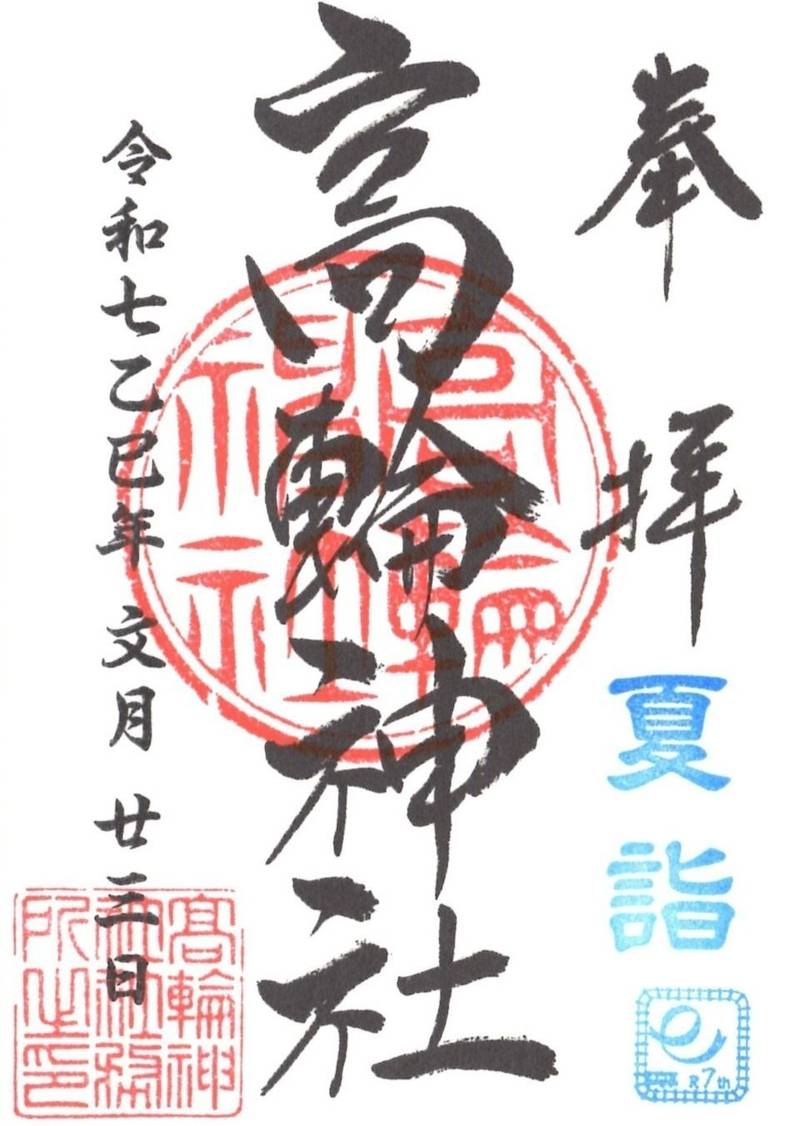 奉拝
夏詣
R7th
高輪神社
高輪神社
令和七乙巳年 文月 廿三日
髙輪神
社社務
所之印